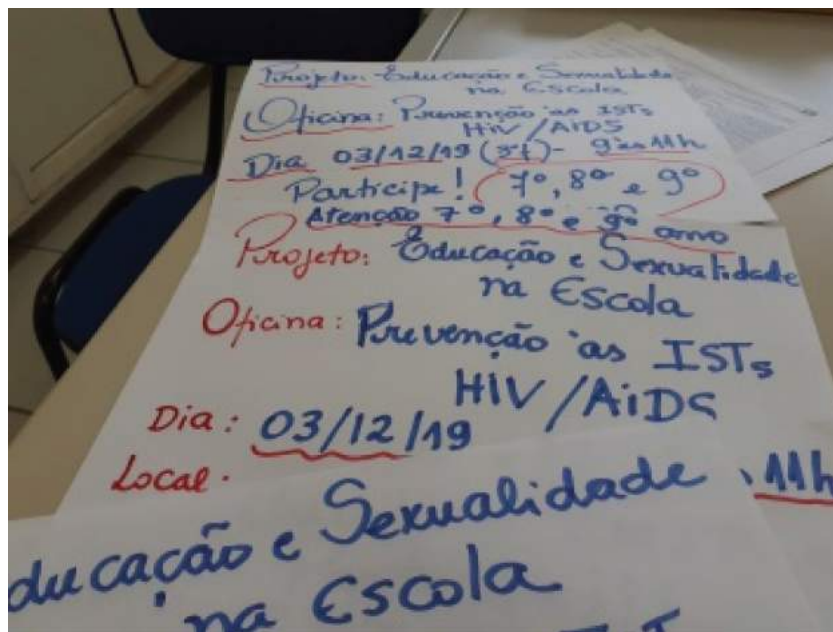 Projeto: Educação e Sexualidade
na Escola
Oficina: Prevenção às ISTs
HIV/AIDS
Dia 03/12/19 (3ª) - 9 às 11h
Participe! 7º, 8º e 9º
Atenção 7º, 8º e 9º ano
Projeto: Educação e Sexualidade
na Escola
Oficina: Prevenção às ISTs
HIV/AiDS
Dia: 03/12/19
Local.
11h
ducação e Sexualidade
na Escola